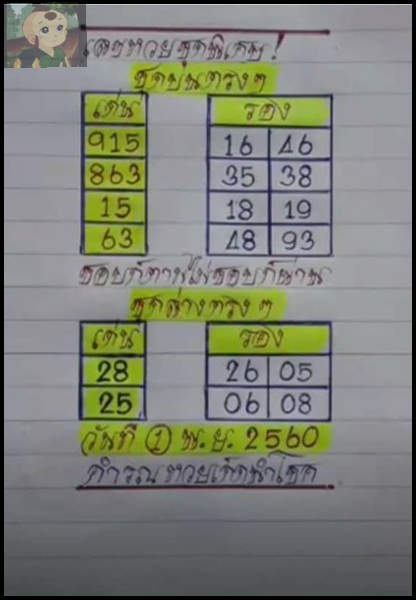 เลขหวยชุดพิเศษ!
ชุดบนตรงๆ
เด่น รอง
915 16 46
863 35 38
15 18 19
63 48 93
ชอบก็ตามไม่ชอบก็ผ่าน
ชุดล่างตรงๆ
เด่น รอง
28 26 05
25 06 08
วันที่ 1 พ.ย. 2560
คำรณหวยเด็ดนำโชค